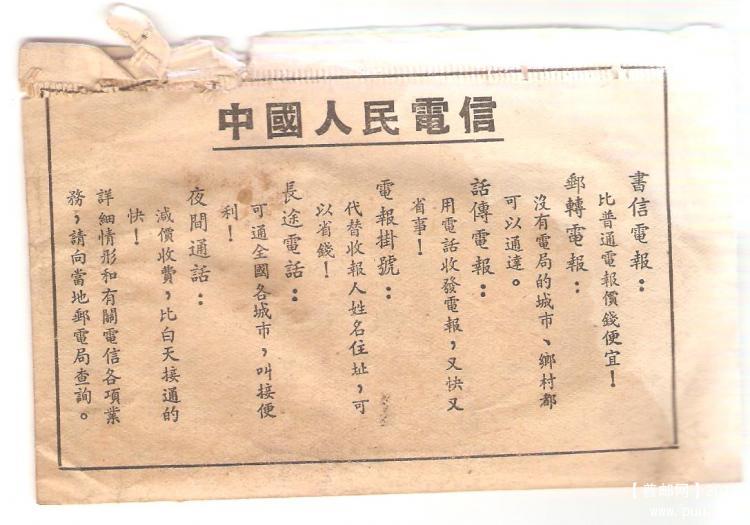 中國人民電信
書信電報：
比普通電報價錢便宜！
郵轉電報：
沒有電局的城市、鄉村都
可以通達。
話傳電報：
用電話收發電報，又快又
省事！
電報掛號：
代替收報人姓名住址，可
以省錢！
長途電話：
可通全國各城市，叫接便
利！
夜間通話：
減價收費，比白天接通的
快！
詳細情形和有關電信各項業
務，請向當地郵電局查詢。